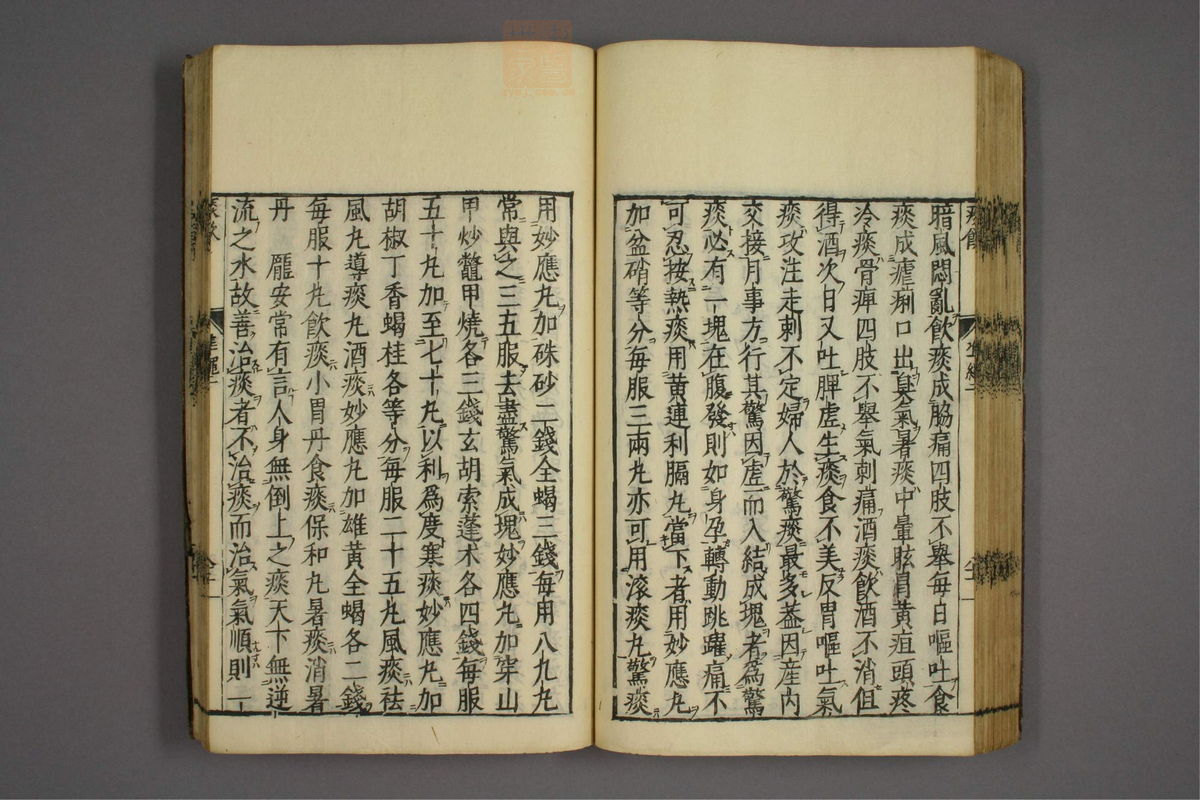 暗風悶亂飲痰成脇痛四肢不舉每日嘔吐食
痰成瘧痢口出臭氣暑痰中暈眩肩黃疸頭疼
冷痰骨痺四肢不舉氣刺痛酒痰飲酒不消但
得酒次日又吐脾虛生痰食不美反胃嘔吐氣
痰攻注走刺不定婦人於驚痰最多蓋因產內
交接月事方行其驚因虛而入結成塊者為驚
痰必有一塊在腹發則如身孕轉動跳躍痛不
可忍按熱痰用黃連利膈丸當下者用妙應丸
加盆硝等分每服三兩丸亦可用滾痰丸驚痰
用妙應丸加硃砂二錢全蝎三錢每用八九丸
常與之三五服去盡驚氣成塊妙應丸加穿山
甲炒鼈甲燒各三錢玄胡索蓬朮各四錢每服
五十丸加至七十丸以利為度寒痰妙應丸加
胡椒丁香蝎桂各等分每服二十五丸風痰祛
風丸導痰丸酒痰妙應丸加雄黃全蝎各二錢
每服十丸飲痰小胃丹食痰保和丸暑痰消暑
丹　龐安常有言人身無倒上之痰天下無逆
流之水故善治痰者不治痰而治氣氣順則一